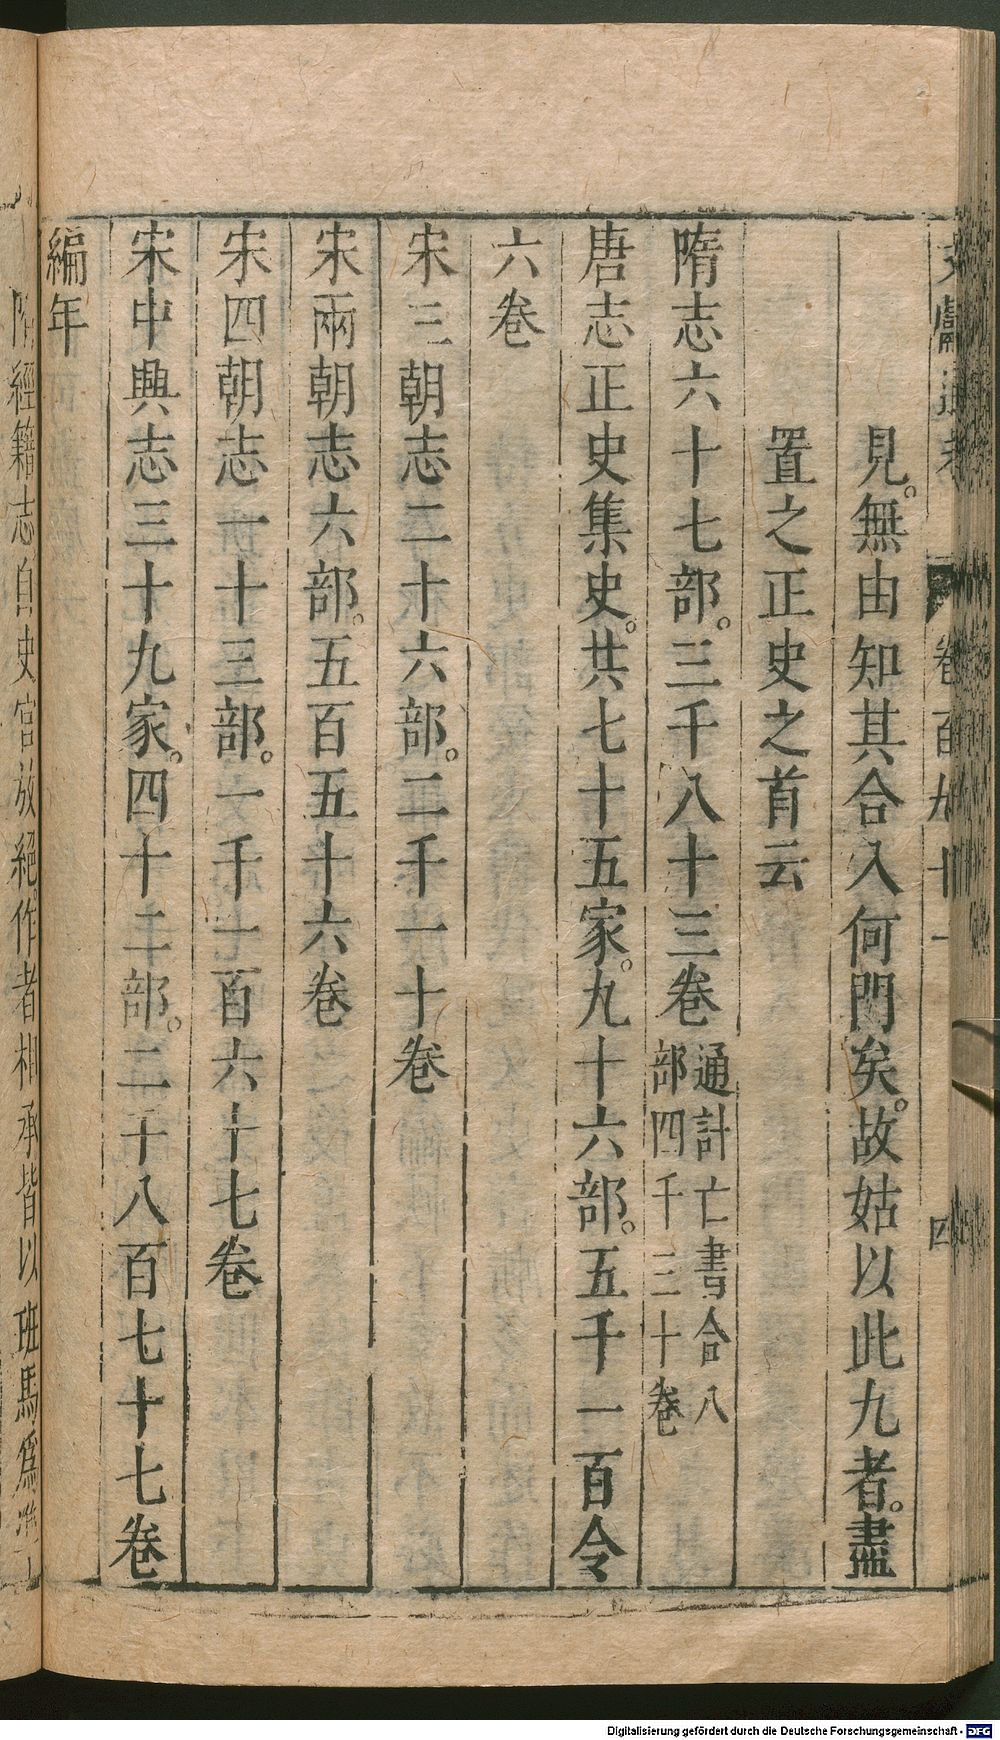 文獻通考 卷百九十一 四
見。無由知其合入何門矣。故姑以此九者。盡
置之正史之首云
隋志六十七部。三千八十三卷 通計亡書合八
部四千三十卷
唐志正史集史。共七十五家。九十六部。五千一百令
六卷
宋三朝志二十六部。二千一十卷
宋兩朝志六部。五百五十六卷
宋四朝志一十三部。一千七百六十七卷
宋中興志三十九家。四十二部。二千八百七十七卷
編年
隋經籍志自史官放絕作者相承皆以班馬爲準
Digitalisierung gefördert durch die Deutsche Forschungsgemeinschaft - DFG